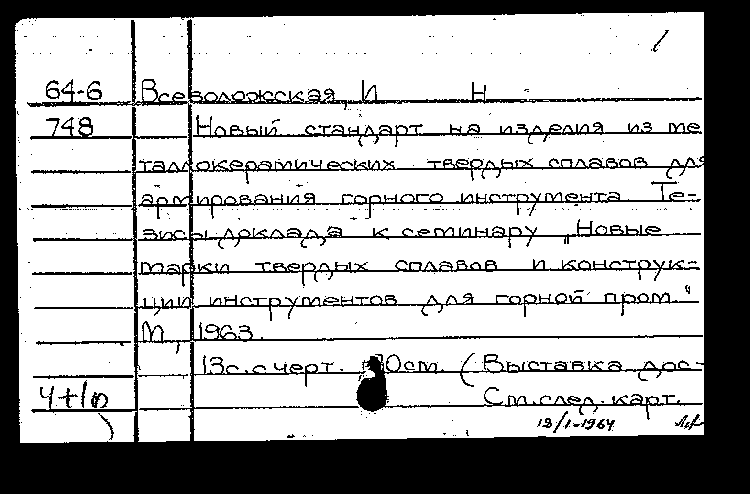 1
64-6 Всеволожская, И Н
748 Новый стандарт на изделия из ме
таллокерамических твердых сплавов для
армирования горного инструмента Те-
зисы доклада к семинару „Новые
марки твердых сплавов и конструк-
ции инструментов для горной пром."
М, 1963.
13с. с черт. 70см. (Выставка дос-
4+1п См. след. карт.
12/1-1964